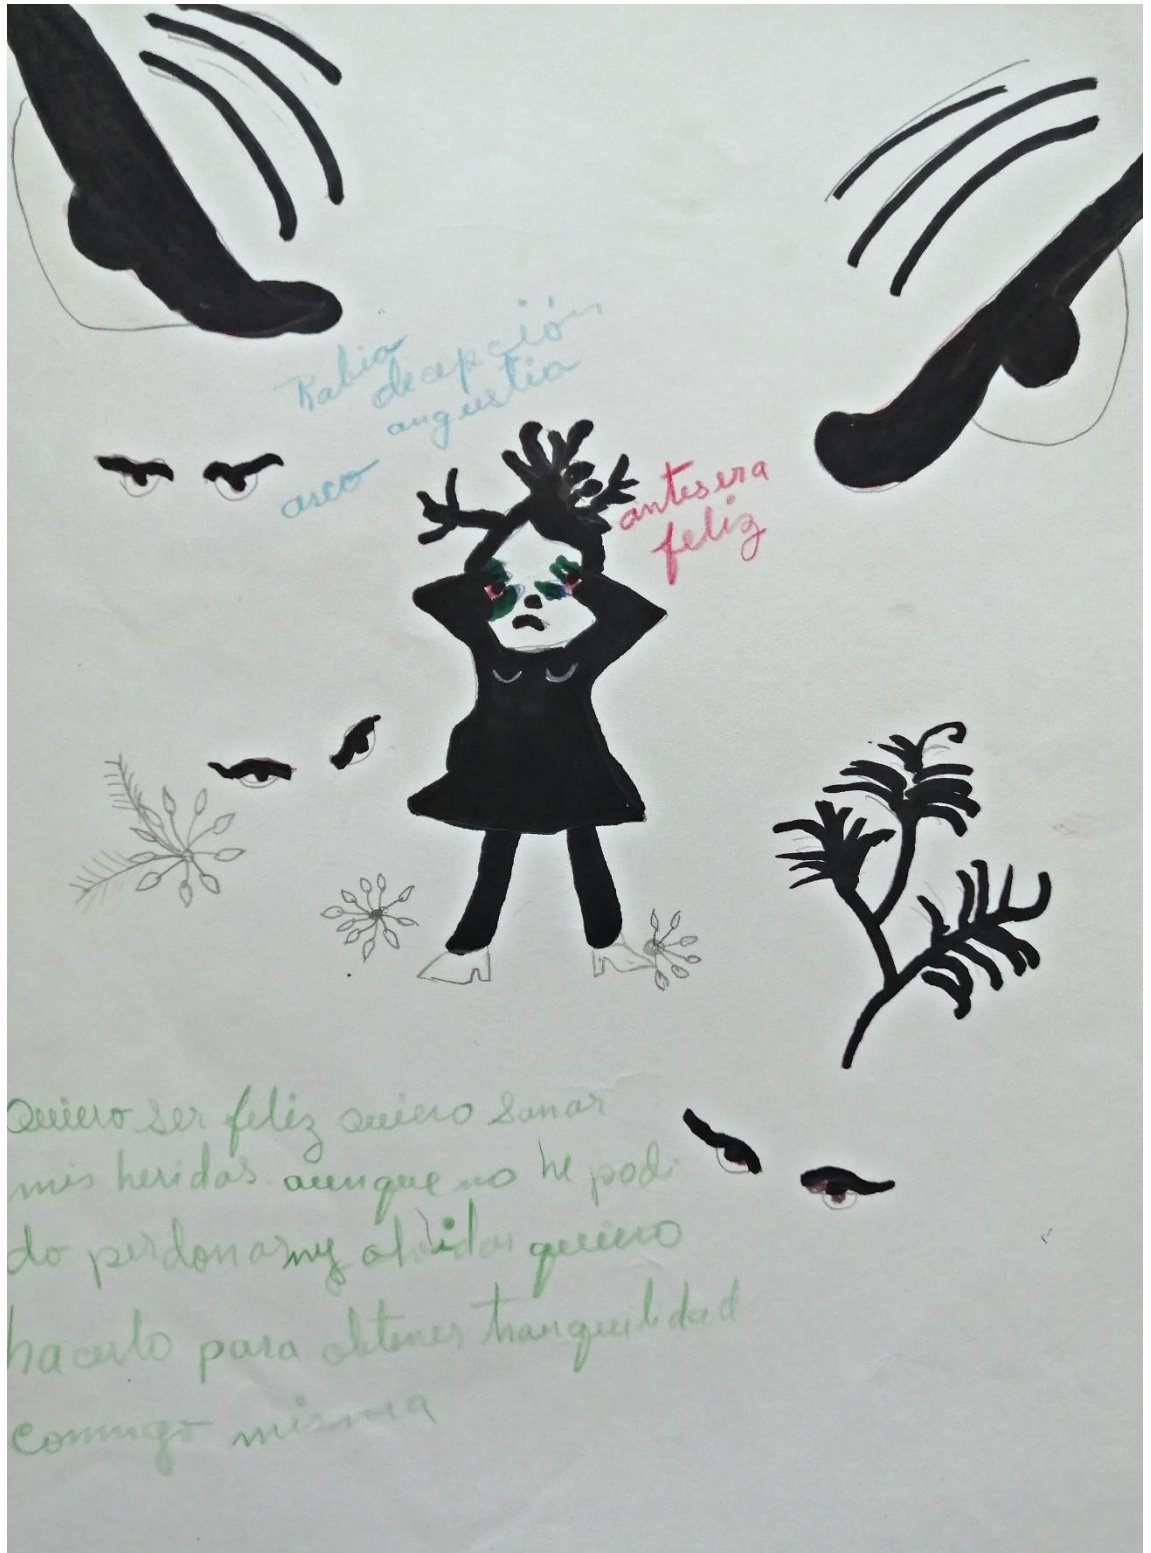 Rabia
decepción
angustia
asco
antes era
feliz
Quiero ser feliz quiero sanar
mis heridas aunque no he podi
do perdonar ny olvidar quiero
hacerlo para obtener tranquilidad
conmigo misma